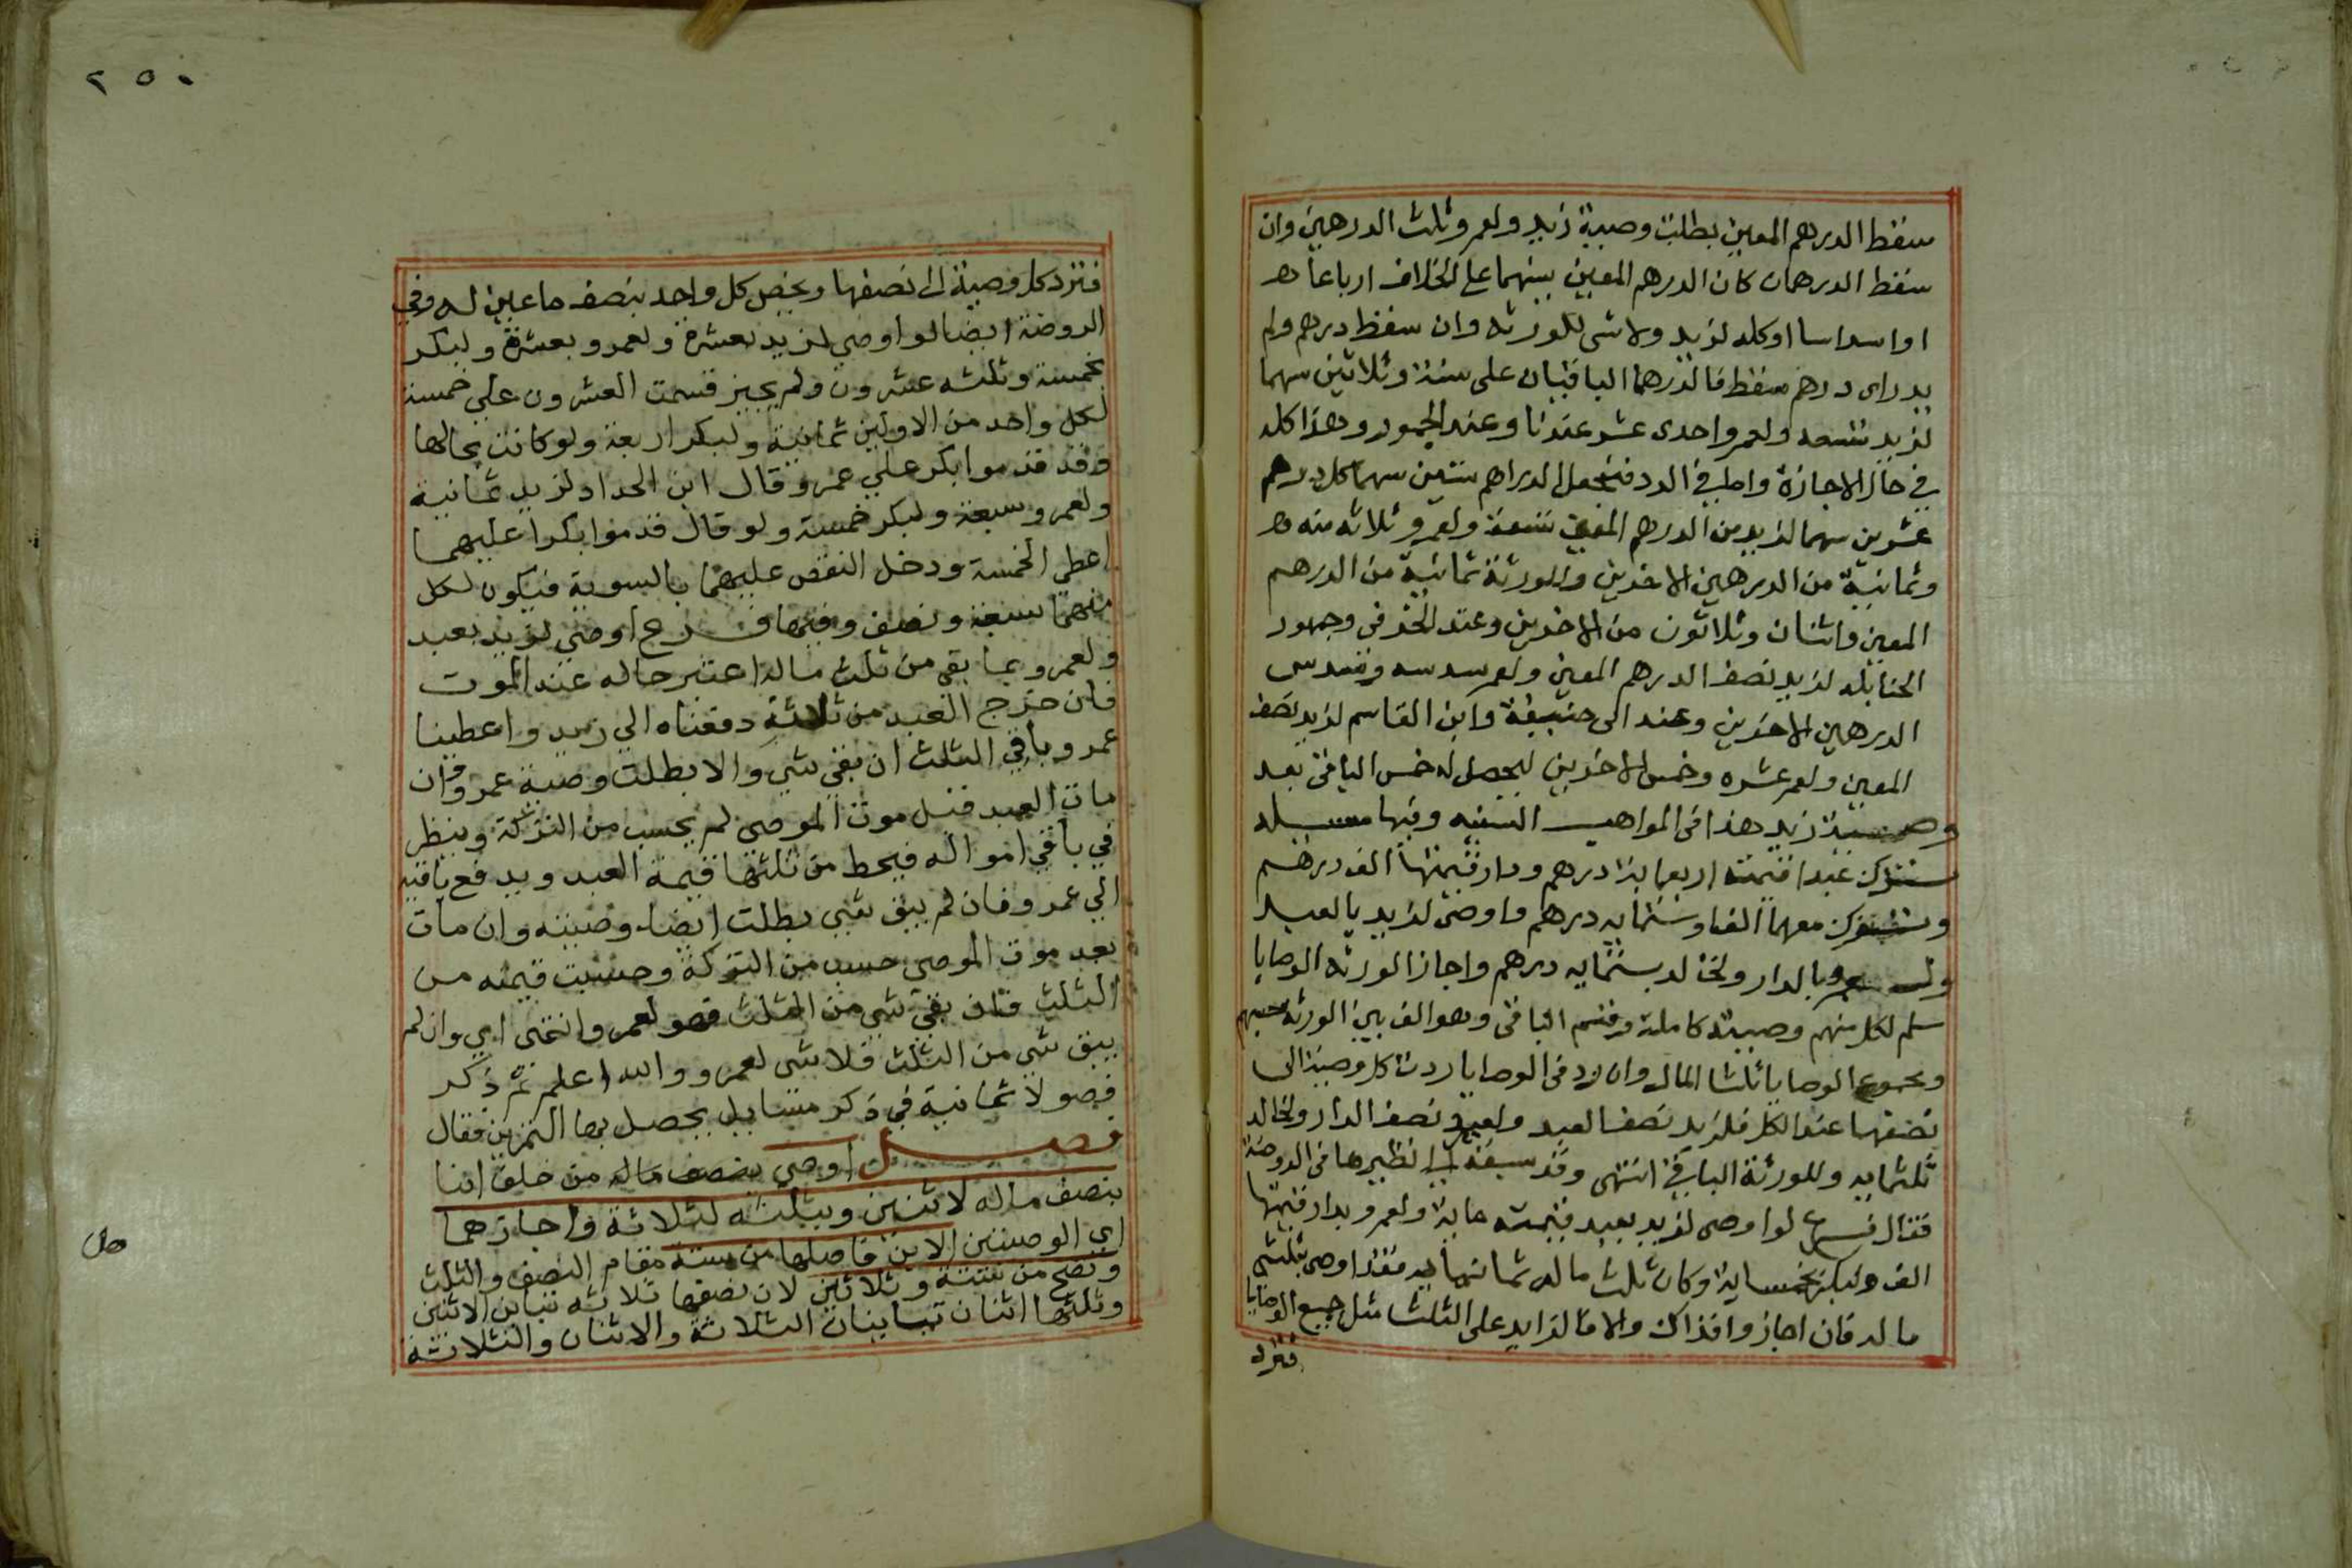 سقط الدرهم المعين بطلت وصية زيد ولعمر وثلث الدرهمين وان
سقط الدرهمان كان الدرهم المعين بينهما على الخلاف ارباعا
او اسداسا او كله لزيد ولا شي للورثه وان سقط درهم ولم
يدر اى درهم سقط فالدرهما الباقيان على ستة وثلاثين سهما
لزيد تسعه ولعمر واحدى عشر عندنا وعند الجمهور وهذا كله
في حال الاجازة واما في الرد فتجعل الدراهم ستين سهما كل درهم
عشرين سهما لزيد من الدرهم المعين تسعة ولعمر وثلاثه منه
وثمانية من الدرهمين الاخرين وللورثة ثمانية من الدرهم
المعين واثنان وثلاثون من الاخرين وعند الخرقي وجمهور
الحنابله لزيد نصف الدرهم المعين ولعمر سدسه وسدس
الدرهمين الاخرين وعند ابى حنيفة وابن القاسم لزيد نصف
المعين ولعمر عشره وخمس الاخرين ليحصل له خمس الباقي بعد
وصية زيد هذا فى المواهب السنيه وفيها مسيله
ستترك عبدا قيمته اربعماية درهم ودار قيمتها الف درهم
وتترك معهما الفا وستمايه درهم واوصى لزيد بالعبد
ولعمرو بالدار ولخالد بستمايه درهم واجاز الورثه الوصايا
سلم لكل منهم وصيته كاملة وقسم الباقى وهو الف بين الورثه
ومجموع الوصايا ثلثا المال وان رد فى الوصايا ردت كل وصية الى
نصفها عند الكل فلزيد نصف العبد ولعمرو نصف الدار ولخالد
ثلثمايه وللورثة الباقي انتهى وقد سبقه الى نظيرها فى الروضة
فقال فرع لو اوصى لزيد بعبد قيمته ماية ولعمرو بدار قيمتها
الف ولبكر بخمساية وكان ثلث ماله ثمانمايه فقد اوصى بثلثي
ماله فان اجازوا فذاك والا فالزايد على الثلث مثل جميع الوصايا
فترد
٢٥٠
فترد كل وصية الى نصفها ويخص كل واحد بنصف ما عين له وفي
الروضة ايضا لو اوصي لزيد بعشرة ولعمرو بعشرة ولبكر
بخمسة وثلثه عشرون ولم يجيز قسمت العشرون علي خمسة
لكل واحد من الاولين ثمانية ولبكر اربعة ولو كانت بحالها
وقد قدموا بكر علي عمرو قال ابن الحداد لزيد ثمانية
ولعمرو سبعة ولبكر خمسة ولو قال قدموا بكرا عليهما
اعطي الخمسة ودخل النقص عليهما بالسوية فيكون لكل
منهما سبعة ونصف وفيها فرع اوصي لزيد بعبد
ولعمرو بما بقي من ثلث ماله اعتبر حاله عند الموت
فان خرج العبد من ثلاثة دفعناه الي زيد واعطينا
عمرو باقي الثلث ان بقي شي والا بطلت وصية عمرو وان
مات العبد قبل موت الموصي لم يحسب من التركة وينظر
في باقي امواله فيحط من ثلثها قيمة العبد ويدفع باقيه
الي عمرو فان لم يبق شي بطلت ايضا وصيته وان مات
بعد موت الموصي حسب من التركة وحسبت قيمته من
الثلث فان بقي شي من الثلث فهو لعمرو انتهى اي وان لم
يبق شي من الثلث فلا شى لعمرو والله اعلم ثم ذكر
فصولا ثمانية في ذكر مسايل يحصل بها التمرين فقال
فصل اوصي بنصف ماله من خلف ابنا
بنصف ماله لاثنين وبثلثه لثلاثة واجازهما
اي الوصيتين الابن فاصلها من ستة مقام النصف والثلث
وتصح من ستة وثلاثين لان نصفها ثلاثه تباين الاثنين
وثلثها اثنان تباينان الثلاثة والاثنان والثلاثة